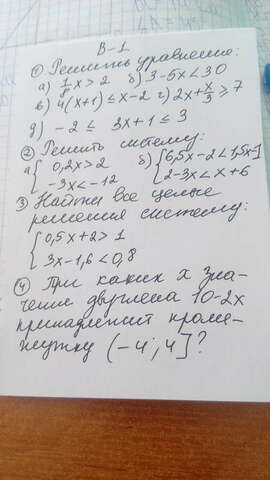 В-1
① Решить уравнение:
а) 1/8 x > 2 б) 3-5x < 30
в) 4(x+1) ≤ x-2 г) 2x + x/3 ≥ 7
д) -2 ≤ 3x+1 ≤ 3
② Решить систему:
а) { 0,2x > 2 б) { 6,5x-2 < 1,5x-1
-3x < -12 2-3x < x+6
3 Найти все целые
решения систему:
{ 0,5x+2 > 1
3x-1,6 < 0,8
④ При каких x зна-
чение двучлена 10-2x
принадлежит проме-
жутку (-4; 4]?